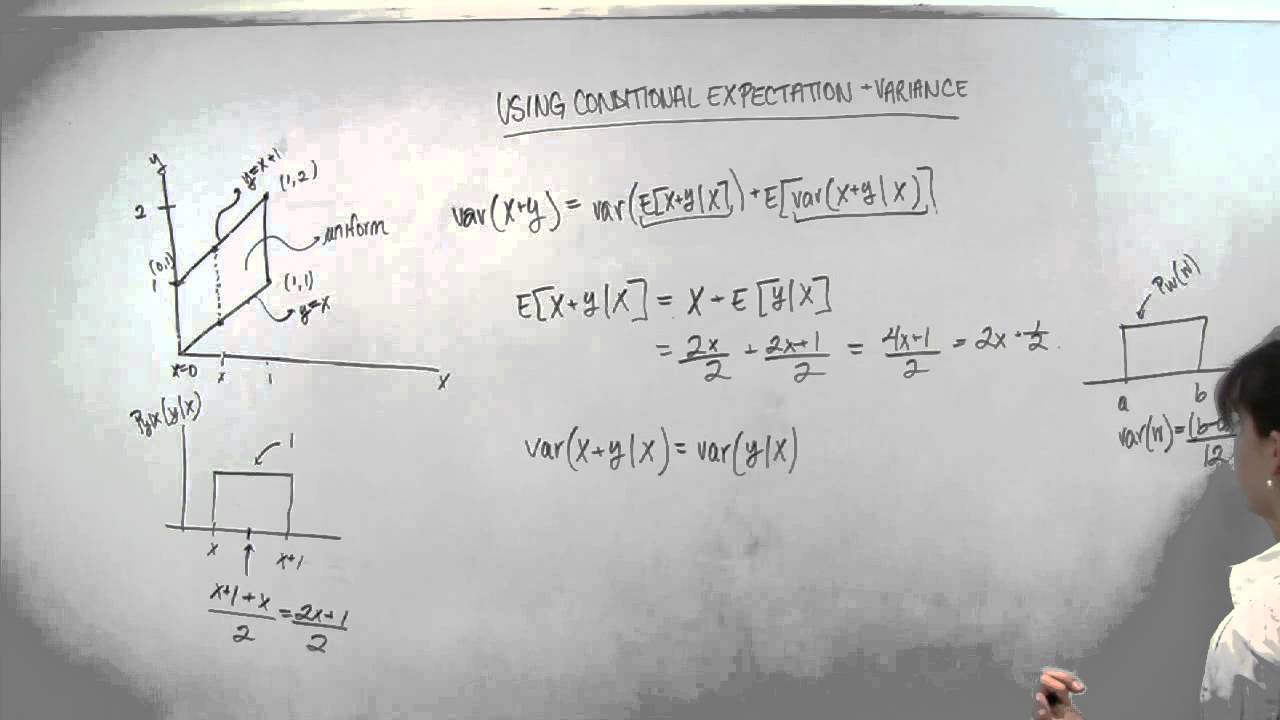 USING CONDITIONAL EXPECTATION + VARIANCE
y
2
y=x+1
(1,2)
uniform
(0,1)
1
(1,1)
y=x
x=0
x
1
x
var(X+Y) = var(E[X+Y|X]) + E[var(X+Y|X)]
E[X+Y|X] = X + E[Y|X]
= 2X/2 + 2X+1/2 = 4X+1/2 = 2X + 1/2
var(X+Y|X) = var(Y|X)
PY|X(y|x)
1
x
x+1
x+1+x/2 = 2x+1/2
PW(w)
a
b
var(W)=(b-a
12